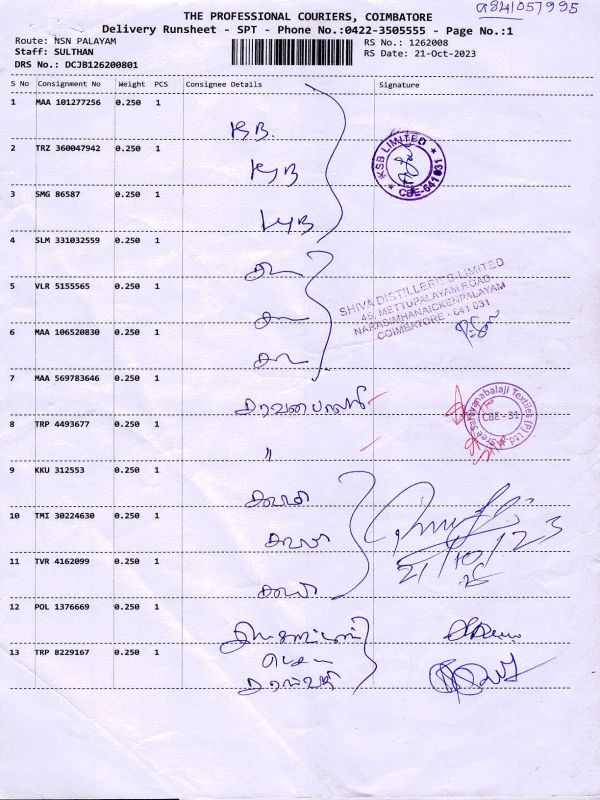 9841057995
THE PROFESSIONAL COURIERS, COIMBATORE
Delivery Runsheet - SPT - Phone No.:0422-3505555 - Page No.:1
Route: NSN PALAYAM RS No.: 1262008
Staff: SULTHAN RS Date: 21-Oct-2023
DRS No.: DCJB126200801
S No Consignment No Weight PCS Consignee Details Signature
1 MAA 101277256 0.250 1
KSB LIMITED
CBE-641031
2 TRZ 360047942 0.250 1
3 SMG 86587 0.250 1
4 SLM 331032559 0.250 1
SHIVA DISTILLERIES LIMITED
45, METTUPALAYAM ROAD
NARASIMHANAICKENPALAYAM
COIMBATORE - 641 031
5 VLR 5155565 0.250 1
6 MAA 106520830 0.250 1
7 MAA 569783646 0.250 1
Sree Saravanabalaji Textiles (P) Ltd
CBE-31
8 TRP 4493677 0.250 1 "
9 KKU 312553 0.250 1
10 TMI 30224630 0.250 1
21/10/23
11 TVR 4162099 0.250 1
12 POL 1376669 0.250 1
13 TRP 8229167 0.250 1